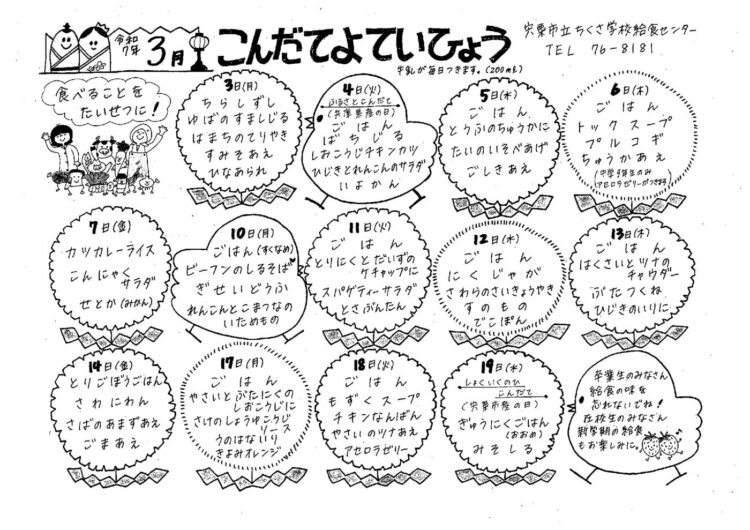 令和
7年
3月
こんだてよていひょう
牛乳が毎日つきます。(200mL)
宍粟市立ちくさ学校給食センター
TEL 76-8181
食べることを
たいせつに!
3日(月)
ちらしずし
ゆばのすましじる
はまちのてりやき
すみそあえ
ひなあられ
4日(火)
ふるさとこんだて
(兵庫県産の日)
ごはん
ばちじる
しおこうじチキンカツ
ひじきとれんこんのサラダ
いよかん
5日(水)
ごはん
とうふのちゅうかに
たいのいそべあげ
ごしきあえ
6日(木)
ごはん
トックスープ
プルコギ
ちゅうかあえ
(中学3年生のみ
アセロラゼリーがつきます)
7日(金)
カツカレーライス
こんにゃく
サラダ
せとか(みかん)
10日(月)
ごはん(すくなめ)
ビーフンのしるそば
ぎせいどうふ
れんこんとこまつなの
いためもの
11日(火)
ごはん
とりにくとだいずの
ケチャップに
スパゲティーサラダ
とさぶんたん
12日(水)
ごはん
にくじゃが
さわらのさいきょうやき
すのもの
でこぽん
13日(木)
ごはん
はくさいとツナの
チャウダー
ぶたつくね
ひじきのいりに
14日(金)
とりごぼうごはん
さわにわん
さばのあまずあえ
ごまあえ
17日(月)
ごはん
やさいとぶたにくの
しおこうじに
さけのしょうゆこうじ
ソース
うのはないり
きよみオレンジ
18日(火)
ごはん
もずくスープ
チキンなんばん
やさいのツナあえ
アセロラゼリー
19日(水)
しょくいくのひ
こんだて
(宍粟市産の日)
ぎゅうにくごはん
(おおめ)
みそしる
卒業生のみなさん
給食の味を
忘れないでね!
在校生のみなさん
新学期の給食
もお楽しみに。